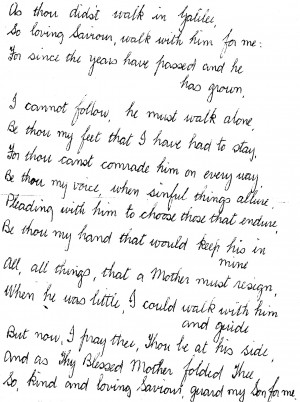 As thou didst walk in Galilee,
So loving Saviour, walk with him for me:
For since the years have passed and he
has grown,
I cannot follow, he must walk alone,
Be thou my feet that I have had to stay,
For thou canst comrade him on every way,
Be thou my voice, when sinful things allure,
Pleading with him to choose those that endure,
Be thou my hand that would keep his in
mine
All, all things, that a Mother must resign,
When he was little, I could walk with him
and guide
But now, I pray thee, Thou be at his side,
And as Thy Blessed Mother folded Thee
So, kind and loving Saviour, guard my Son for me.